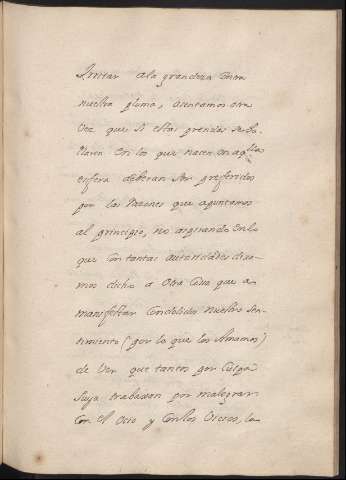 Irritar ala grandeza contra
nuestra pluma, asentamos otra
vez que si estas prendas se ha-
llaren en los que nacen en aqlla
esfera deberan ser preferidos
por las razones que apuntamos
al principio, no aspirando en lo
que con tantas autoridades dexa-
mos dicho a otra cosa que a
manifestar condolidos nuestro sen-
timiento (por lo que los Amamos)
de ver que tantos por culpa
suya trabaxan por malograr
con el ocio y con los vicios, la